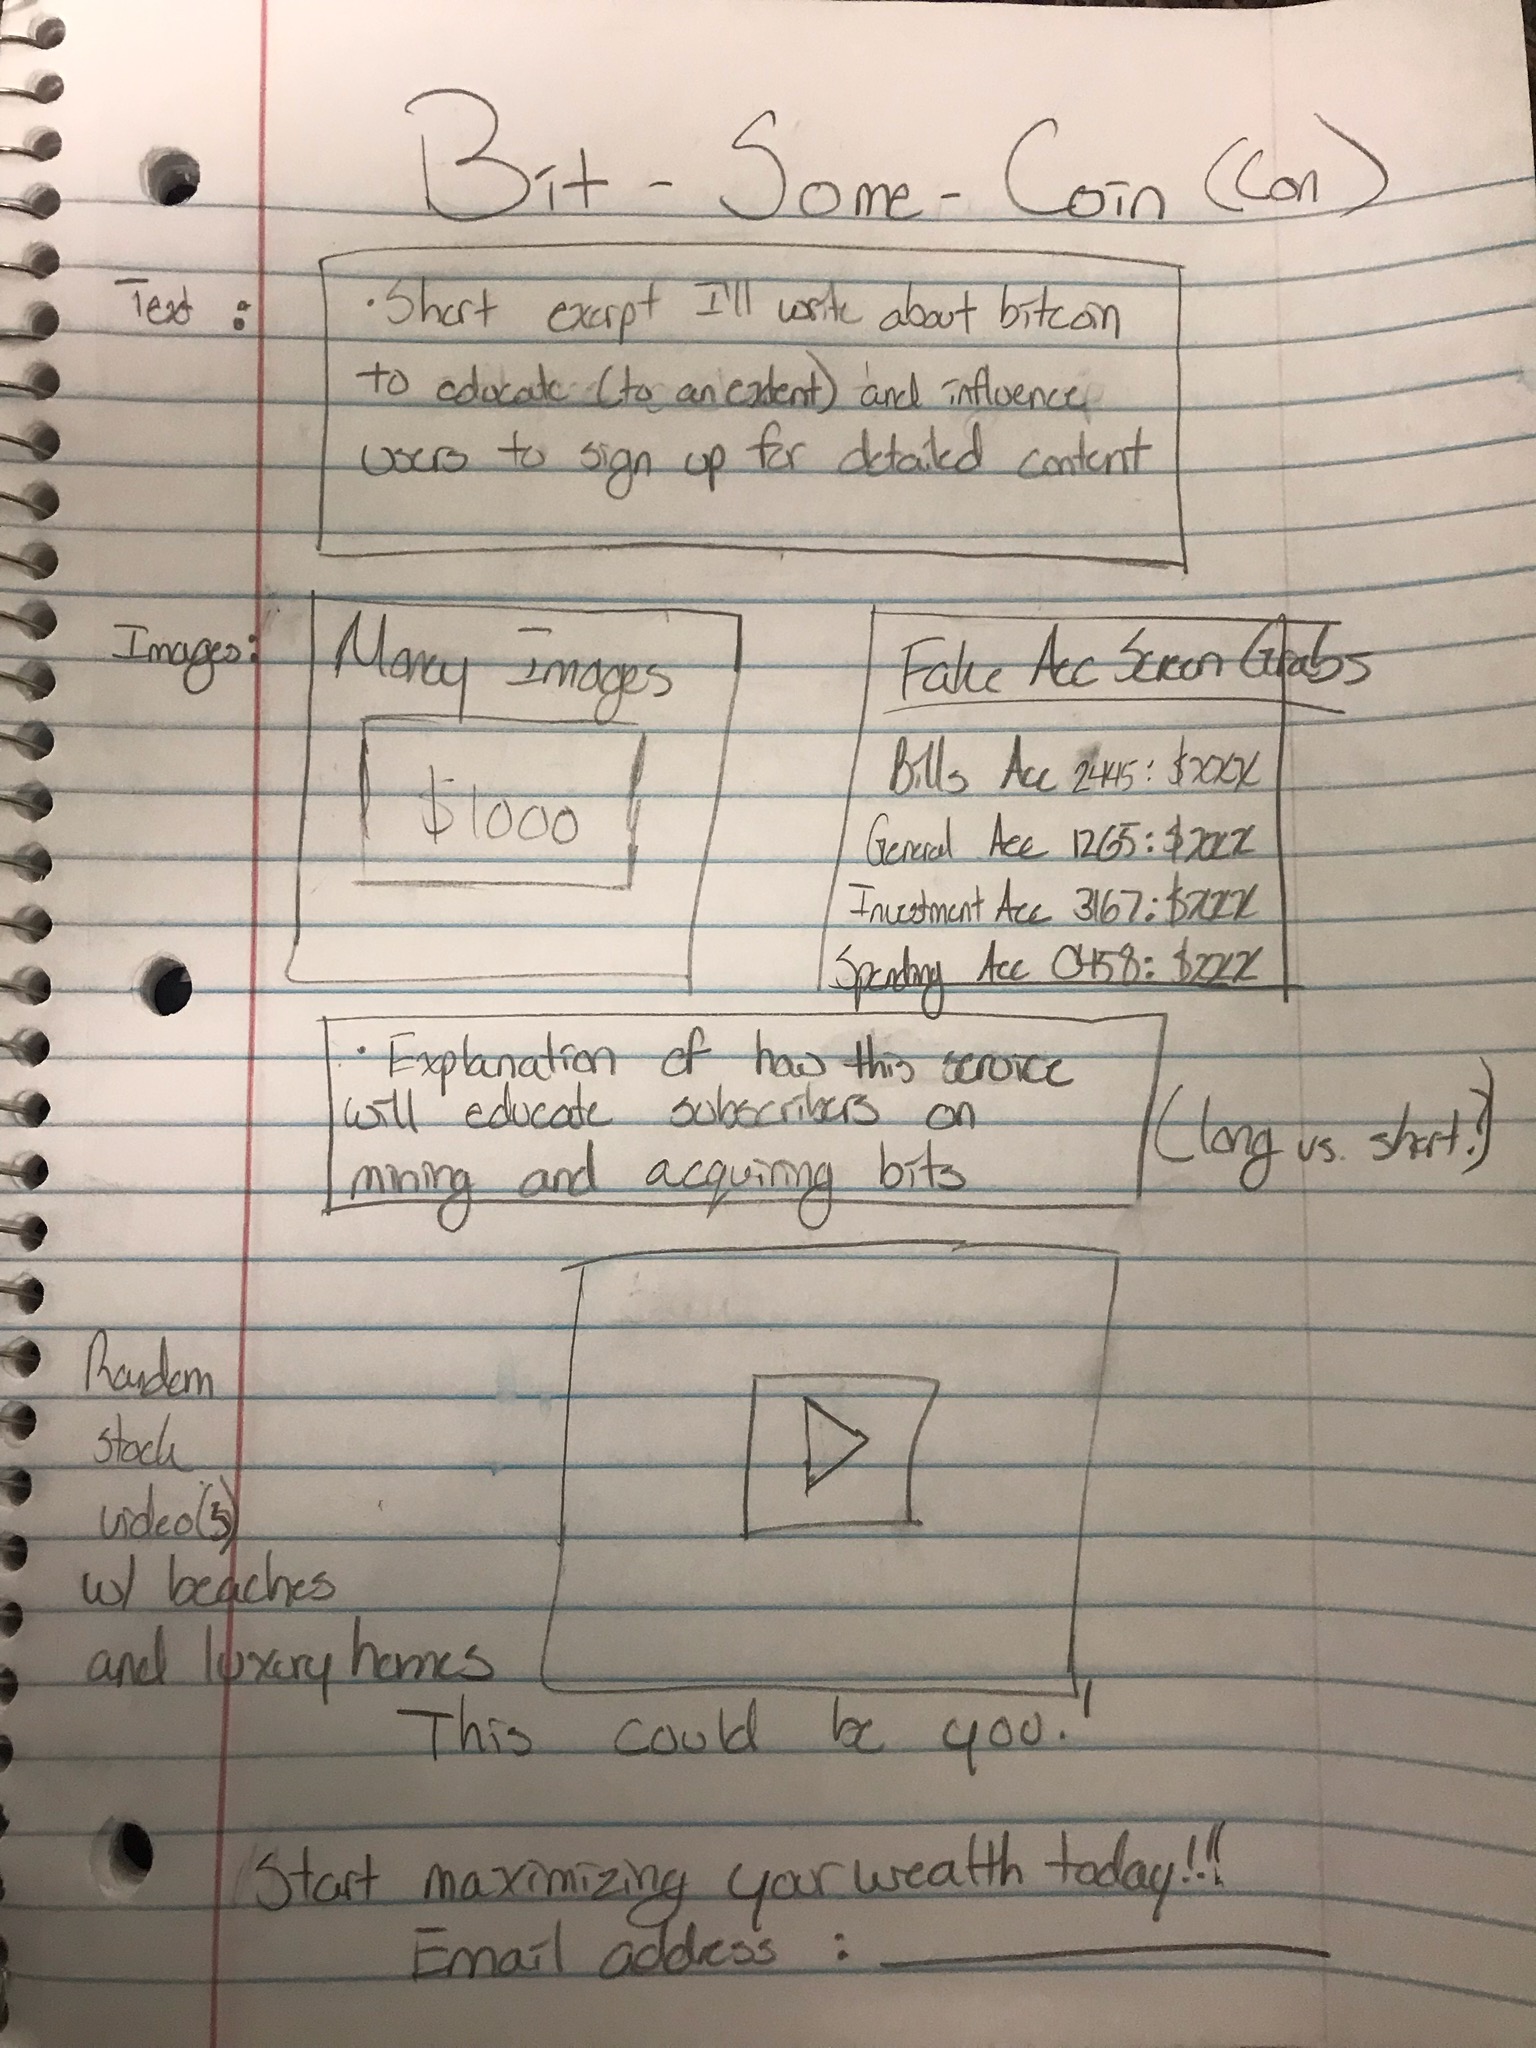 Bit - Some - Coin (Con)
Text :
• Short exerpt I'll write about bitcoin
to educate (to an extent) and influence
users to sign up for detailed content
Images:
Money Images
$1000
Fake Acc Screen Grabs
Bills Acc 2445: $XXX
General Acc 1265: $XXX
Investment Acc 3167: $XXX
Spending Acc 0458: $XXX
• Explanation of how this service
will educate subscribers on
mining and acquiring bits
(long vs. short?)
Random
stock
video(s)
w/ beaches
and luxury homes
This could be you!
Start maximizing your wealth today!!!
Email address :